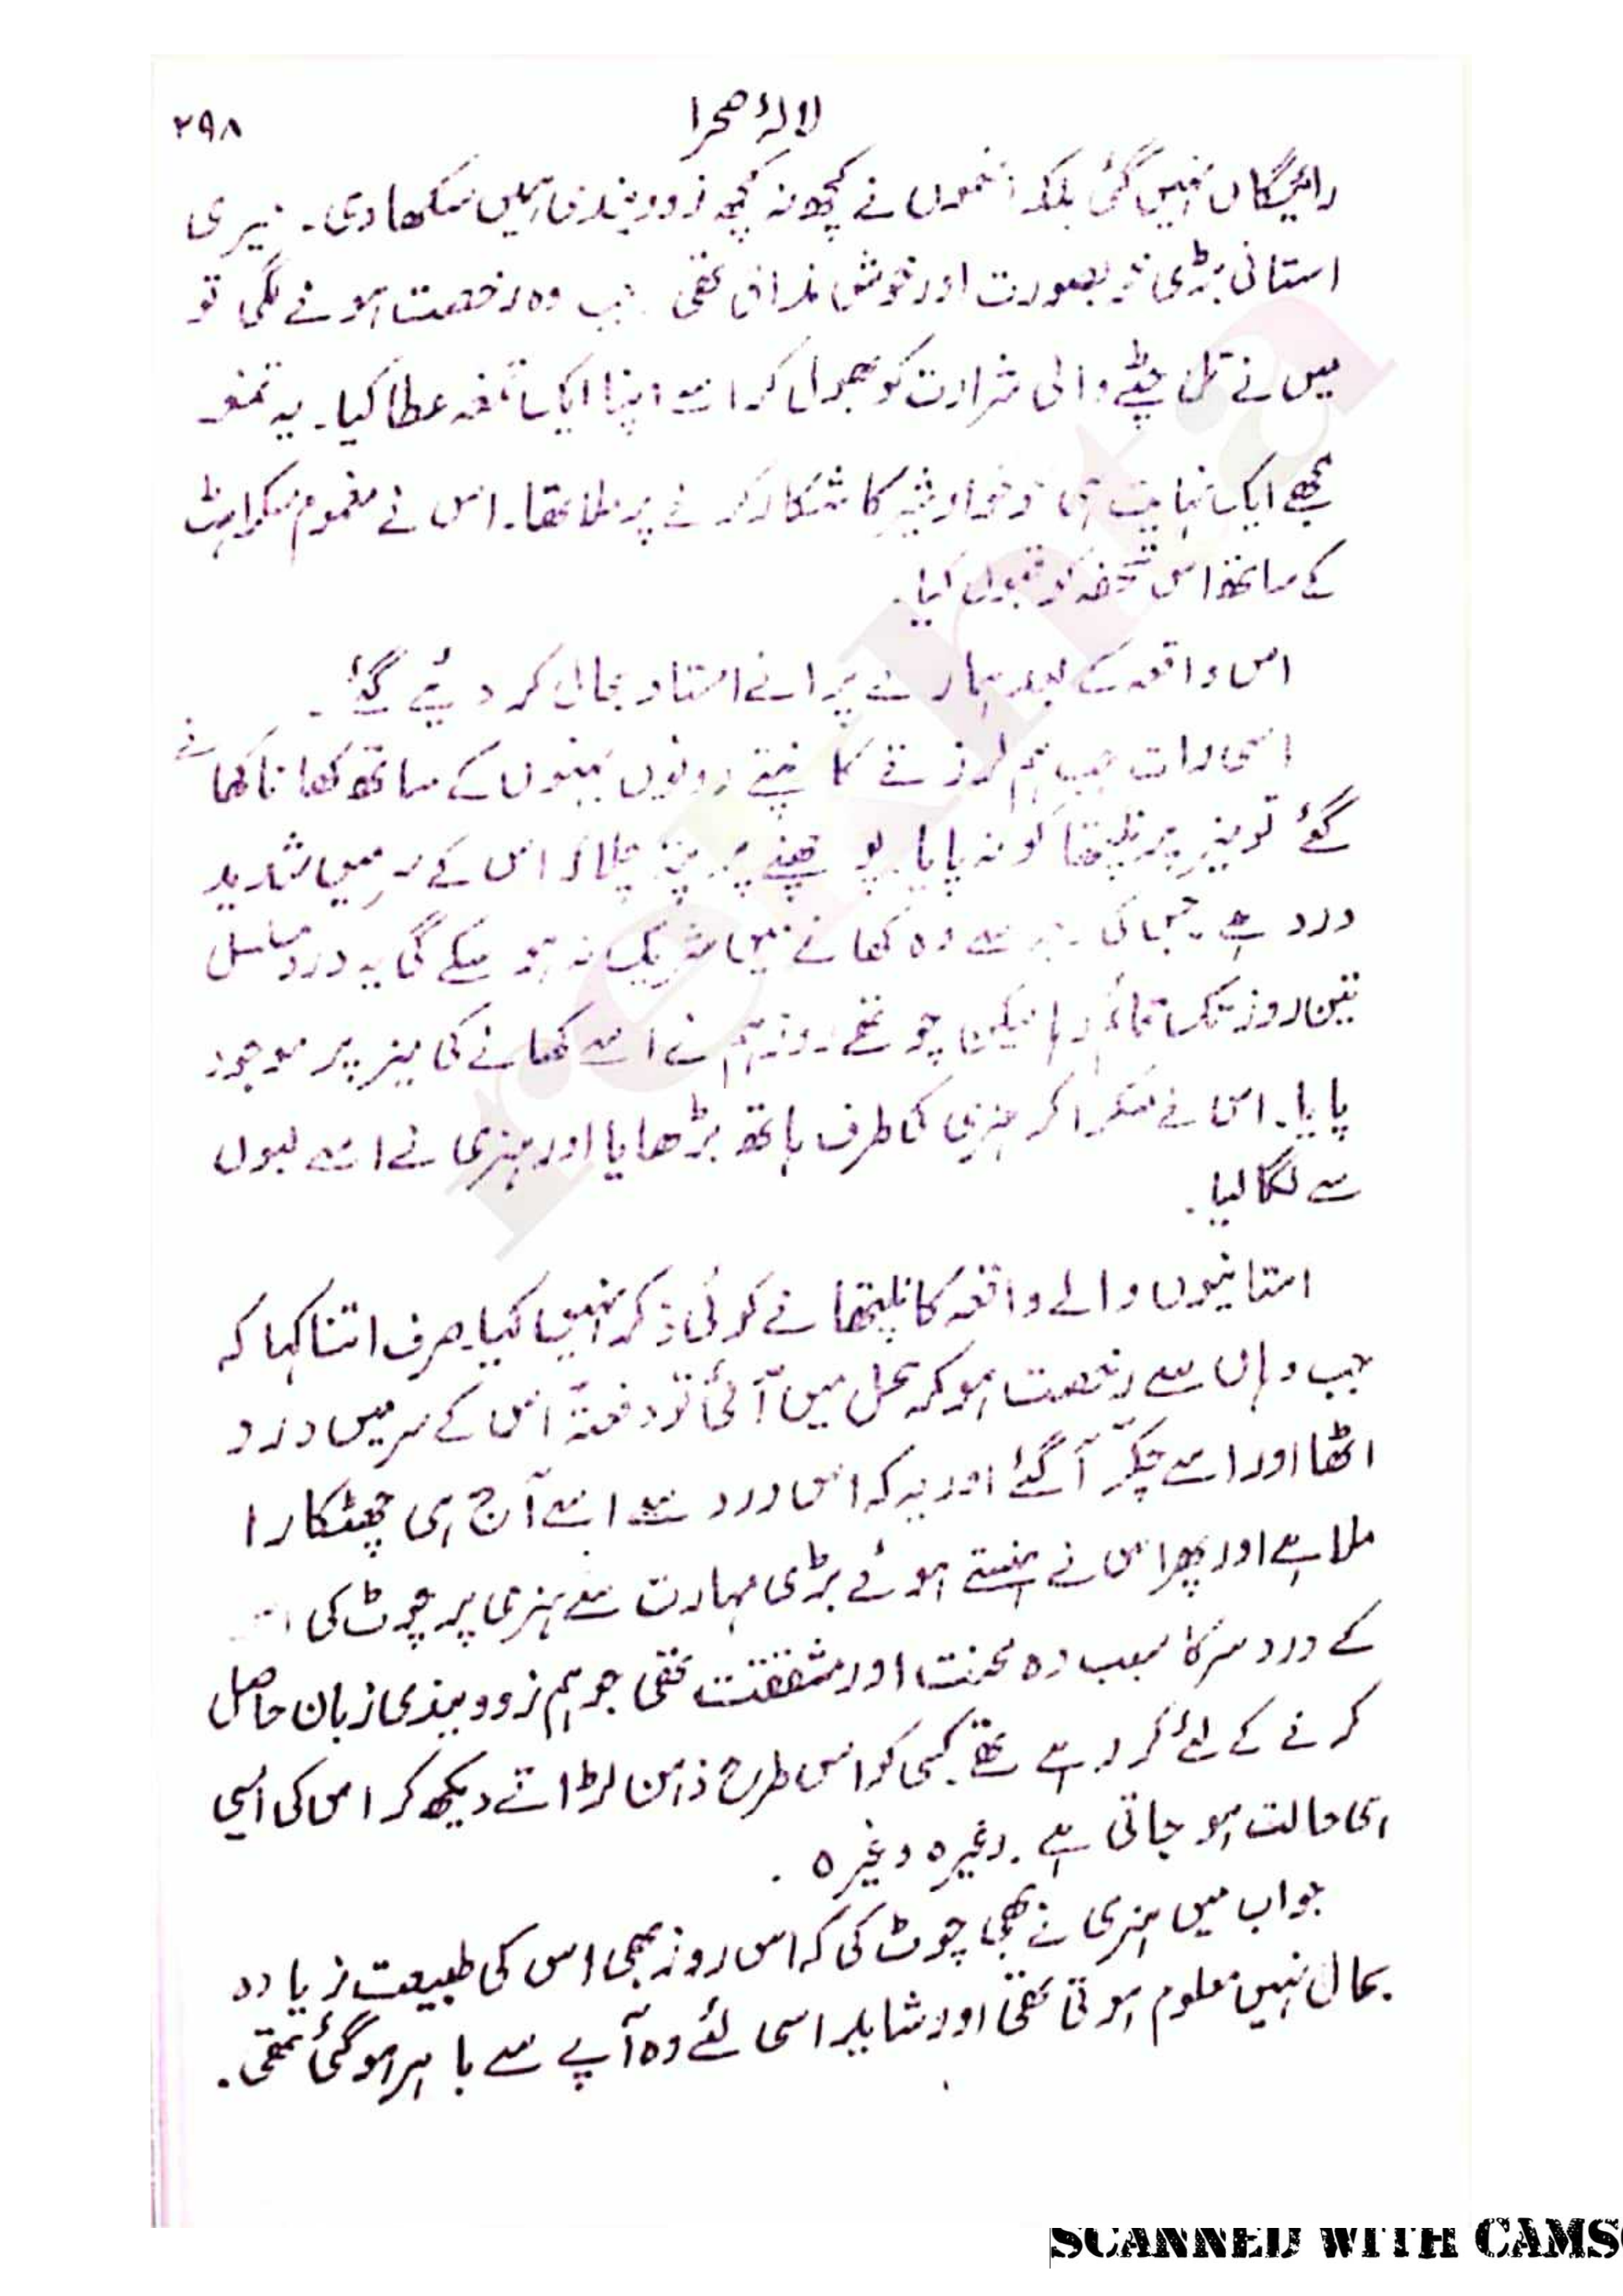 لالۂ صحرا
۲۹۸
رائیگاں نہیں گئی بلکہ انھوں نے کچھ نہ کچھ زوویندی ہمیں سکھا دی۔ میری
استانی بڑی خوبصورت اور خوش مذاق تھی جب وہ رخصت ہونے لگی تو
میں نے تل چٹے والی شرارت کو بھول کر اسے اپنا ایک تمغہ عطا کیا۔ یہ تمغہ
مجھے ایک نہایت ہی خونخوار شیر کا شکار کرنے پر ملا تھا۔ اس نے مغموم مسکراہٹ
کے ساتھ اس تحفہ کو قبول کیا۔
اس واقعہ کے بعد ہمارے پرانے استاد بحال کر دیئے گئے۔
اسی رات جب ہم لرزتے کانپتے دونوں بہنوں کے ساتھ کھانا کھانے
گئے تو میز پر نلیتھا کو نہ پایا۔ پوچھنے پر پتہ چلا کہ اس کے سر میں شدید
درد ہے جس کی وجہ سے وہ کھانے میں شریک نہ ہو سکے گی یہ درد مسلسل
تین روز تک قائم رہا لیکن چوتھے روز ہم نے اسے کھانے کی میز پر موجود
پایا۔ اس نے مسکرا کر ہنری کی طرف ہاتھ بڑھایا اور ہنری نے اسے لبوں
سے لگا لیا۔
استانیوں والے واقعہ کا نلیتھا نے کوئی ذکر نہیں کیا۔ صرف اتنا کہا کہ
جب وہاں سے رخصت ہو کر محل میں آئی تو دفعتہً اس کے سر میں درد
اٹھا اور اسے چکّر آ گئے اور یہ کہ اس درد سے اسے آج ہی چھٹکارا
ملا ہے اور پھر اس نے ہنستے ہوئے بڑی مہارت سے ہنری پر چوٹ کی
کے درد سر کا سبب وہ محنت اور مشقت تھی جو ہم زوویندی زبان حاصل
کرنے کے لئے کر رہے تھے۔ کسی کو اس طرح ذہن لڑاتے دیکھ کر اس کی ایسی
ہی حالت ہو جاتی ہے۔ وغیرہ وغیرہ۔
جواب میں ہنری نے بھی چوٹ کی کہ اس روز بھی اس کی طبیعت زیادہ
بحال نہیں معلوم ہوتی تھی اور شاید اسی لئے وہ آپے سے باہر ہو گئی تھی۔
rekhta
SCANNED WITH CAMS